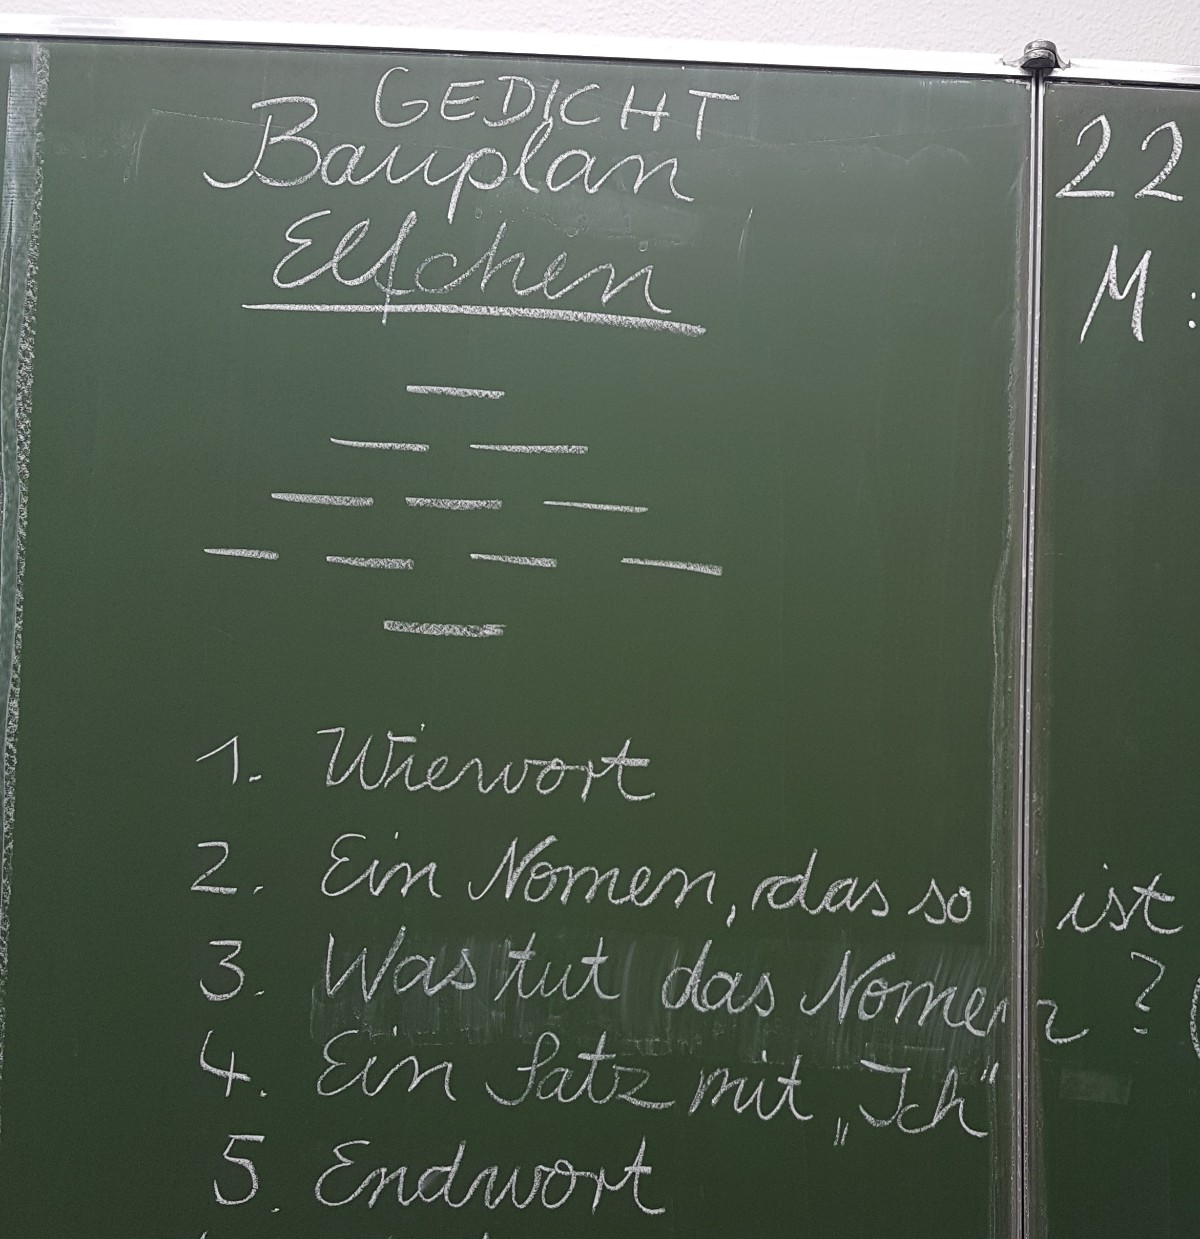 GEDICHT
Bauplan
Elfchen
1. Wiewort
2. Ein Nomen, das so ist
3. Was tut das Nomen ? (
4. Ein Satz mit „Ich“
5. Endwort
22
M :